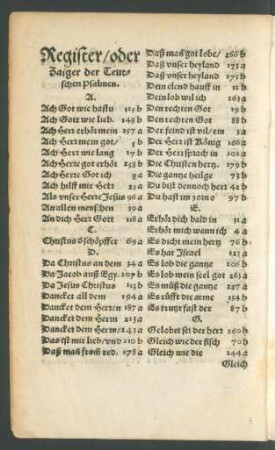 Register/oder
Zaiger der Teut-
schen Psalmen.
A.
Ach Got wie hastu 117 b
Ach Gott wie lieb. 148 b
Ach Herr erhör mein 257 a
Ach Herr mein got/ 5 b
Ach Herr wie lang 17 b
Ach Herre got erhör 258 b
Ach Herre Got ich 8 a
Ach hilff mir Herr 25 a
Als vnser Herre Jesus 96 a
An allen menschen 39 a
An dich Herr Gott 118 a
C.
Christus ö schöpffer 69 a
D.
Da Christus an dem 54 a
Da Jacob auß Egy. 207 b
Da Jesus Christus 113 b
Dancket all dem 194 a
Dancket dem Herren 187 a
Dancket dem Herrn 213 a
Dancket dem Herrn/ 241 a
Das ist mir lieb/vnd 210 b
Daß mañ from̃ red. 178 a
Daß mañ got lobe/ 266 b
Daß vnser heyland 173 a
Daß vnser heyland 175 b
Dein elend hauff in 12 b
Dein lob wil ich 263 a
Den rechten Got 19 b
Den rechten Got 88 b
Der feind ist vil/ein 3 a
Der Herr ist König 166 a
Der Herr sprach in 202 a
Die Christen hertz. 279 b
Die gantze heilge 73 b
Du bist dennoch herr 42 b
Du hast im zorn o 97 b
E.
Erhör dich bald in 31 a
Erhör mich wann ich 4 a
Es dicht mein hertz 76 b
Es hat Israel 123 a
Es lob die gantze 206 b
Es lob mein seel got 263 a
Es müß die gantze 227 a
Es rüfft die arme 154 b
Es trutz fast der 87 b
G.
Gelobet sei der herr 260 b
Gleich wie der fisch 70 b
Gleich wie die 244 a
Gleich